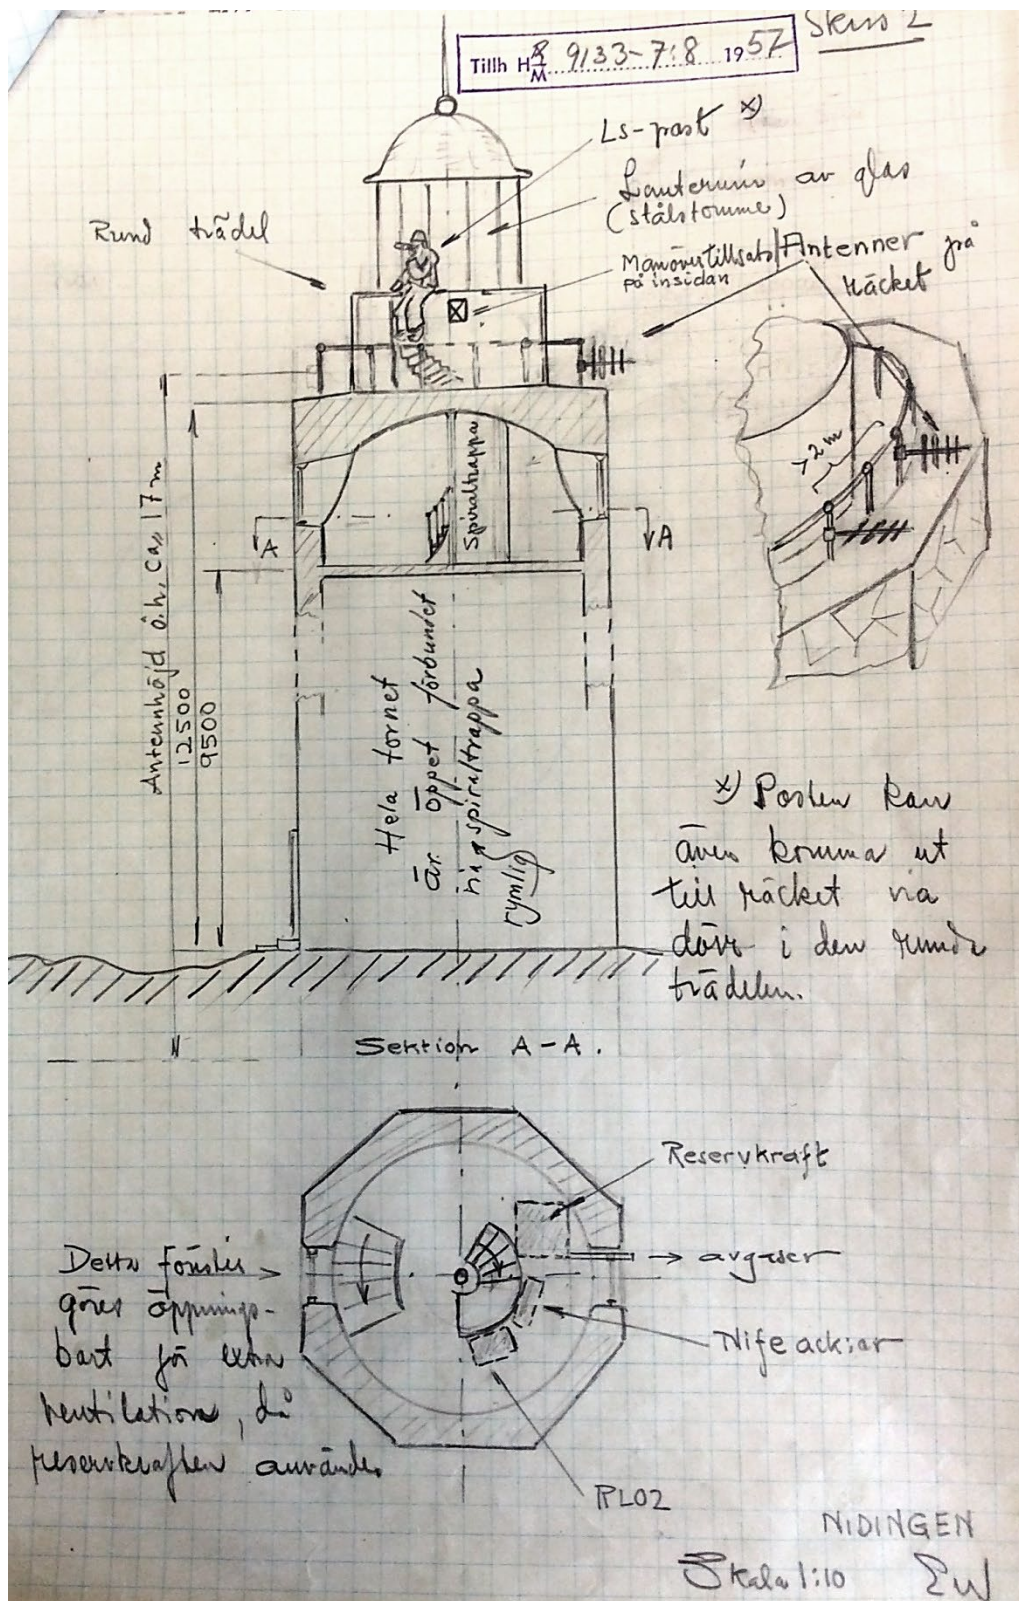 Skiss 2
Tillh H R/M 9133-7:8 1957
Ls-post x)
Lanternin av glas
(stålstomme)
Rund trädel
Manövertillsats
på insidan
Antenner på
räcket
>2m
Spiraltrappa
A
A
Antennhöjd ö.h. ca. 17m
12500
9500
Hela tornet
är öppet förbundet
via spiraltrappa
rymlig
x) Posten kan
även komma ut
till räcket via
dörr i den runda
trädelen.
Sektion A-A.
Reservkraft
→ avgaser
Detta fönster
göres öppnings-
bart för extra
ventilation, då
reservkraften användes
Nife ack:ar
RL02
NIDINGEN
Skala 1:10
EW